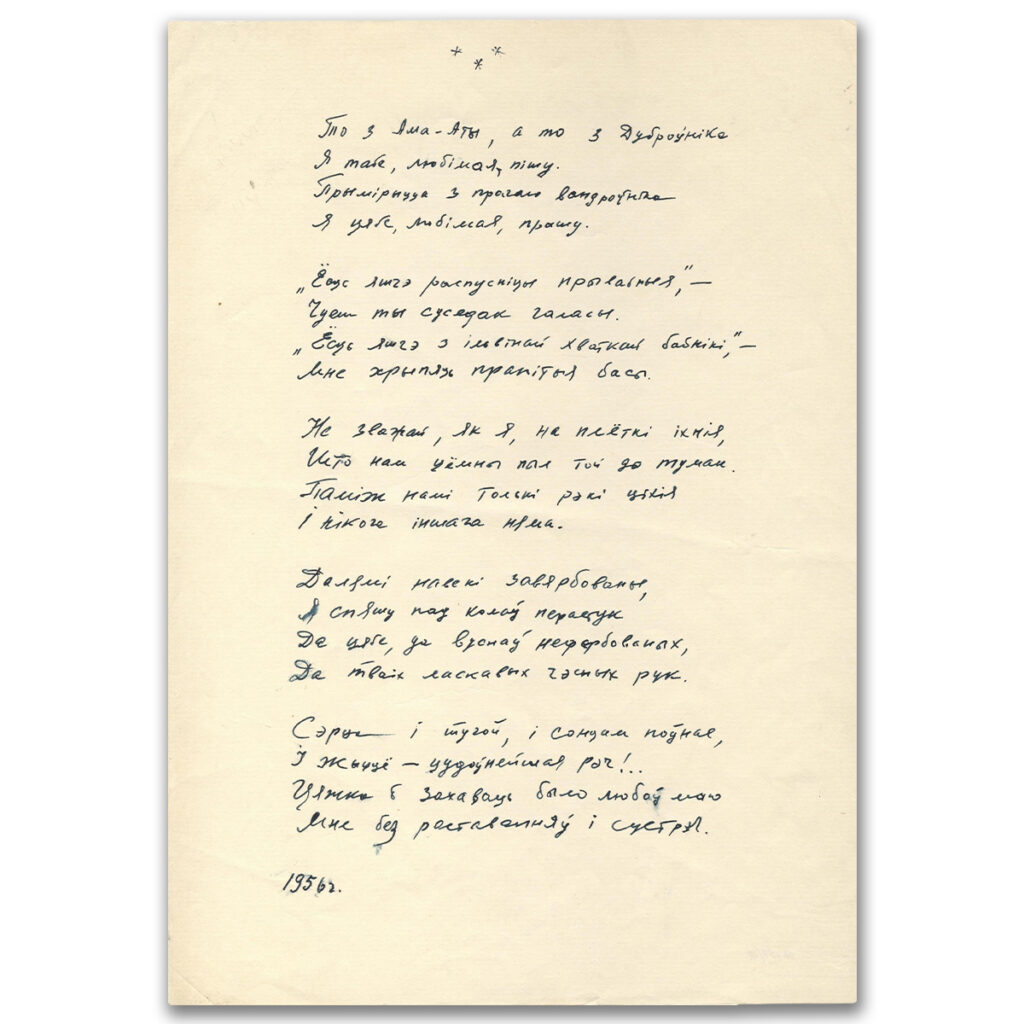 * * *
То з Алма-Аты, а то з Дуброўніка
Я табе, любімая, пішу.
Прымірыцца з прагаю вандроўніка
Я цябе, любімая, прашу.
„Ёсць яшчэ распусніцы прывабныя,"—
Чуеш ты суседак галасы.
„Ёсць яшчэ з ільвінай хваткай бабнікі,"—
Мне хрыпяць прапітыя басы.
Не зважай, як я, на плёткі іхнія,
Што нам цёмны пыл той ды туман.
Паміж намі толькі рэкі ціхія
І нікога іншага няма.
Далямі навекі завярбованы,
Я спяшу пад колаў перастук
Да цябе, да вуснаў нефарбованых,
Да тваіх ласкавых чэсных рук.
Сэрца і тугой, і сонцам поўнае,
І жыццё — цудоўнейшая рэч!..
Цяжка б захаваць было любоў маю
Мне без раставанняў і сустрэч.
1956 г.